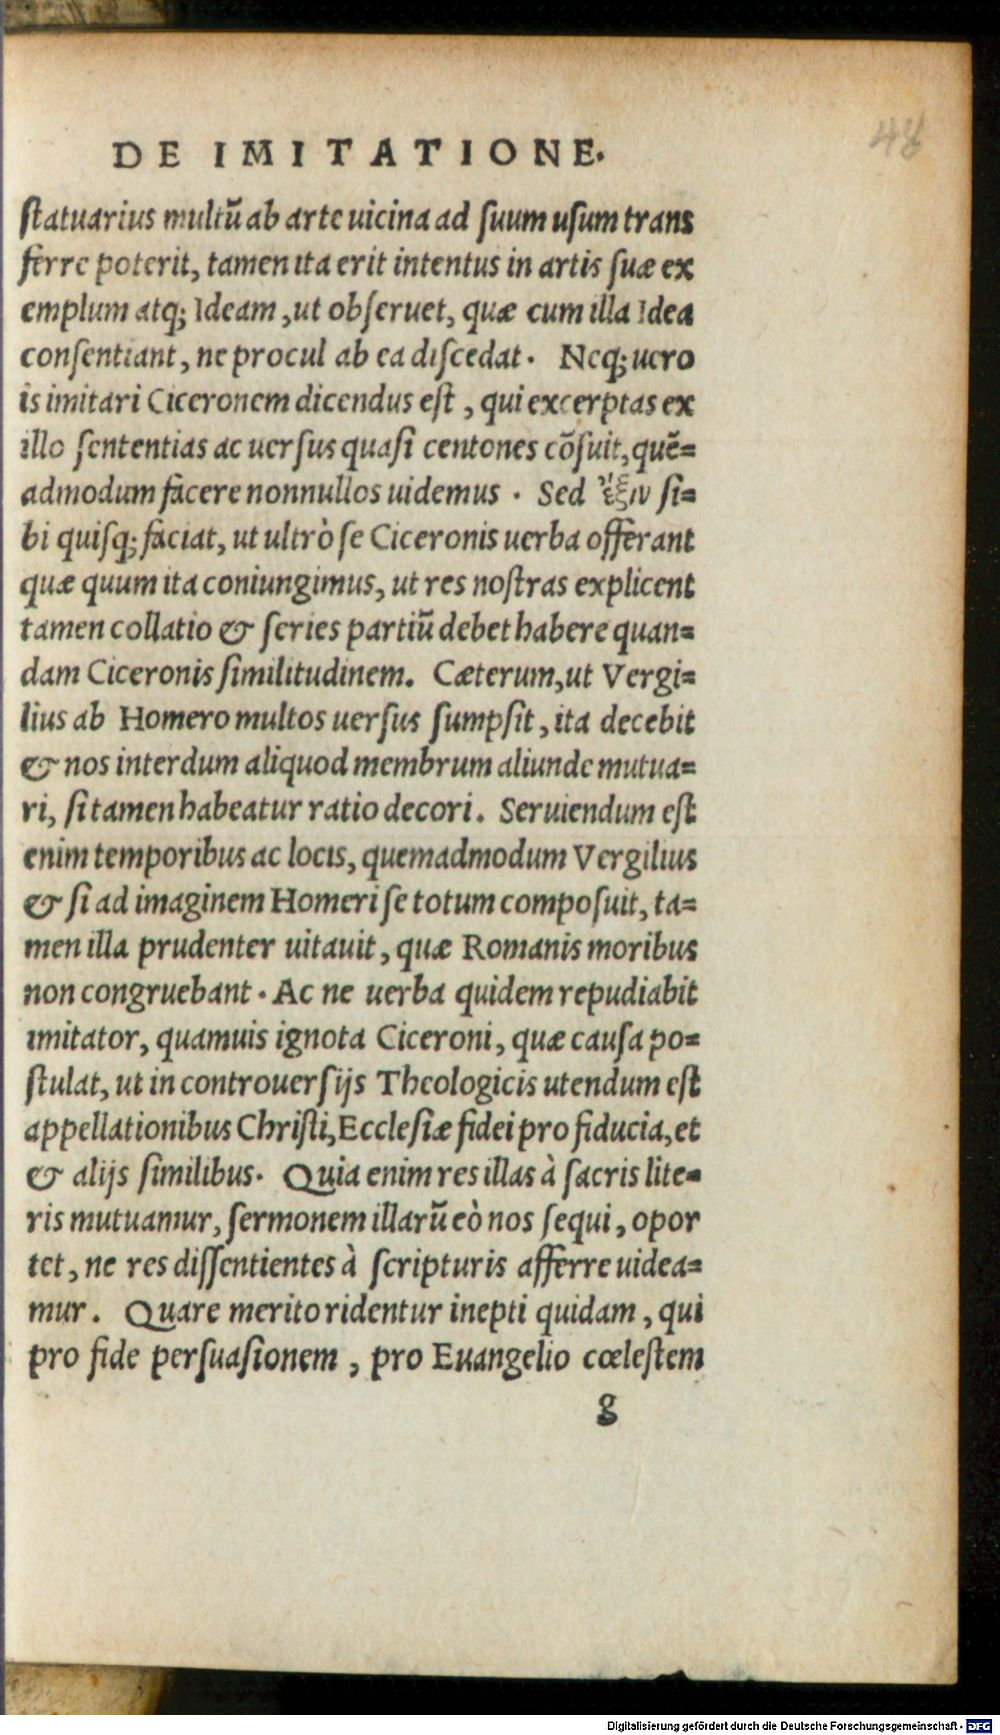 DE IMITATIONE.
48
ſtatuarius multũ ab arte uicina ad ſuum uſum trans
ferre poterit, tamen ita erit intentus in artis ſuæ ex
emplum atq; Ideam, ut obſeruet, quæ cum illa Idea
conſentiant, ne procul ab ea diſcedat. Neq; uero
is imitari Ciceronem dicendus eſt, qui excerptas ex
illo ſententias ac uerſus quaſi centones cõſuit, quẽ=
admodum facere nonnullos uidemus. Sed ἕξιν ſi=
bi quiſq; faciat, ut ultrò ſe Ciceronis uerba offerant
quæ quum ita coniungimus, ut res noſtras explicent
tamen collatio & ſeries partiũ debet habere quan=
dam Ciceronis ſimilitudinem. Cæterum, ut Vergi=
lius ab Homero multos uerſus ſumpſit, ita decebit
& nos interdum aliquod membrum aliunde mutua=
ri, ſi tamen habeatur ratio decori. Seruiendum eſt
enim temporibus ac locis, quemadmodum Vergilius
& ſi ad imaginem Homeri ſe totum compoſuit, ta=
men illa prudenter uitauit, quæ Romanis moribus
non congruebant. Ac ne uerba quidem repudiabit
imitator, quamuis ignota Ciceroni, quæ cauſa po=
ſtulat, ut in controuerſijs Theologicis utendum eſt
appellationibus Chriſti, Eccleſiæ fidei pro fiducia, et
& alijs ſimilibus. Quia enim res illas à ſacris lite=
ris mutuamur, ſermonem illarũ eò nos ſequi, opor
tet, ne res diſſentientes à ſcripturis afferre uidea=
mur. Quare merito ridentur inepti quidam, qui
pro fide perſuaſionem, pro Euangelio cœleſtem
g
Digitalisierung gefördert durch die Deutsche Forschungsgemeinschaft - DFG